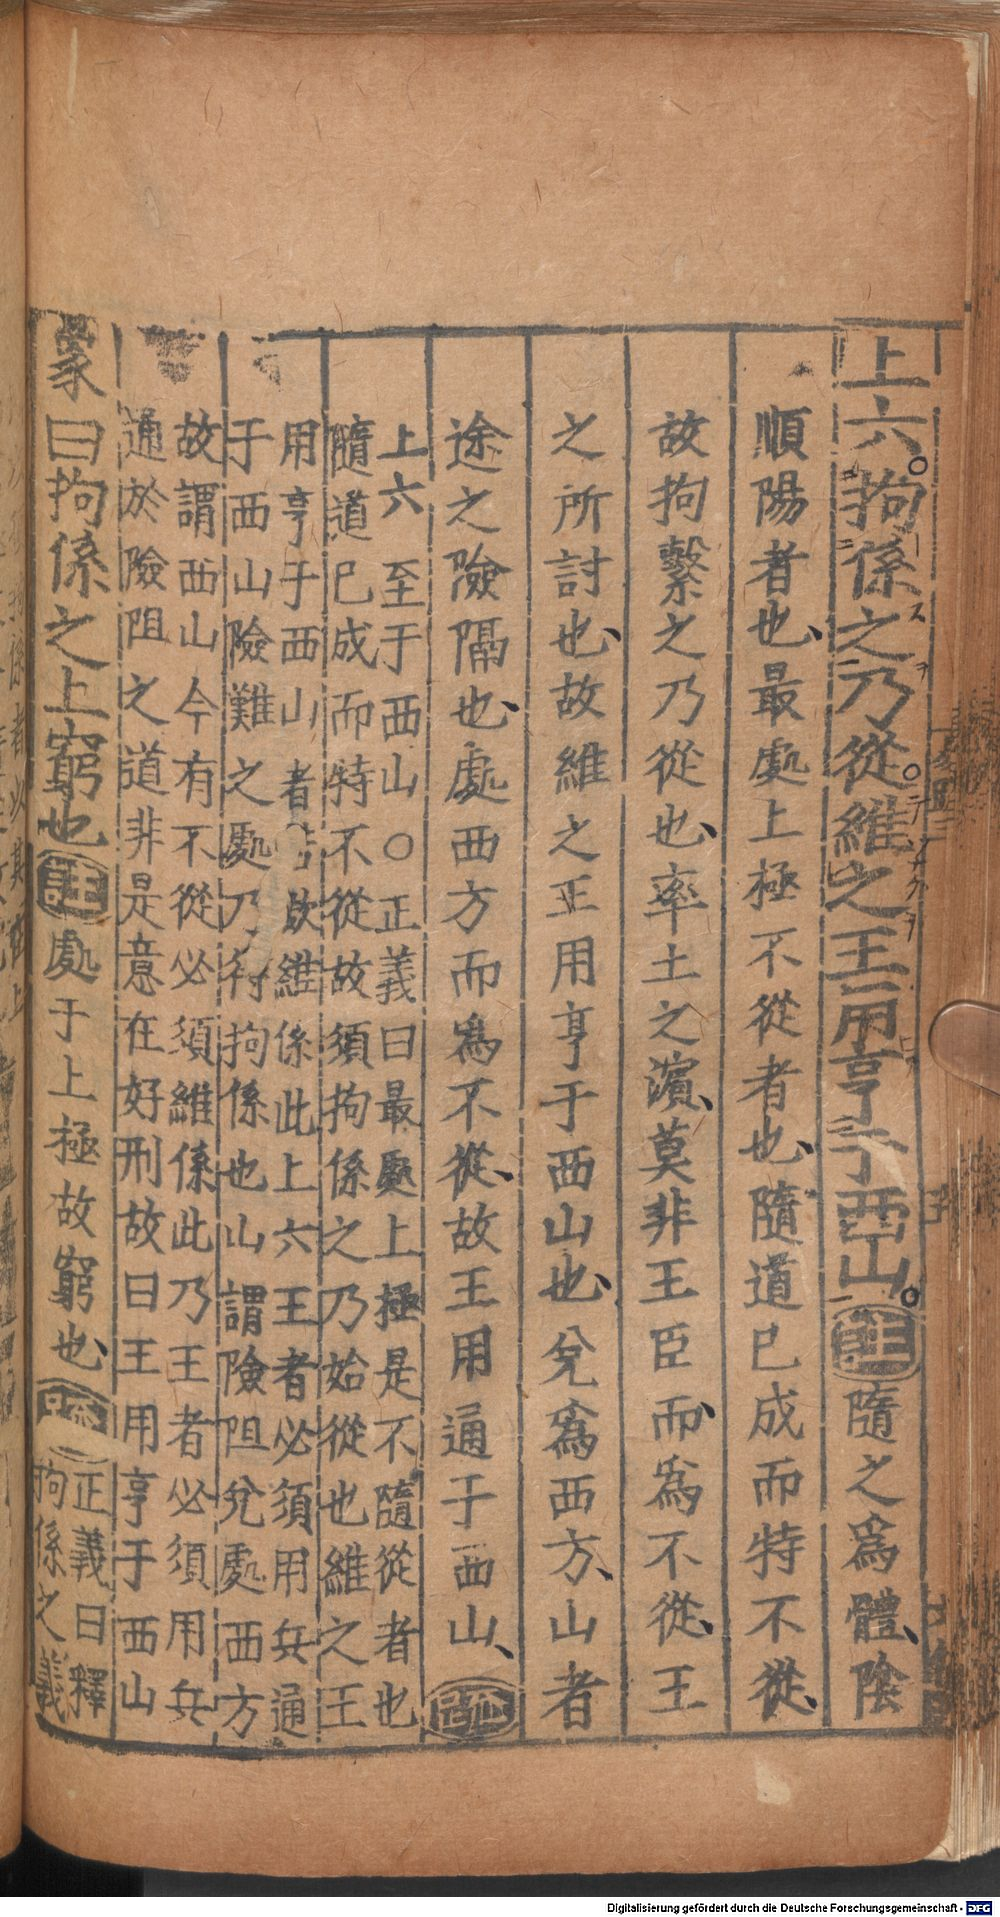 上六拘係之乃從維之王用亨于西山註隨之爲體陰
順陽者也最處上極不從者也隨道已成而特不從
故拘繫之乃從也率土之濵莫非王臣而爲不從王
之所討也故維之王用亨于西山也兌爲西方山者
途之險隔也處西方而爲不從故王用通于西山疏
上六至于西山○正義曰最處上極是不隨從者也
隨道已成而特不從故須拘係之乃始從也維之王
用亨于西山者 欲維係此上六王者必須用兵通
于西山險難之處乃得拘係也山謂險阻兌處西方
故謂西山今有不從必須維係此乃王者必須用兵
通於險阻之道非是意在好刑故曰王用亨于西山
象曰拘係之上窮也註處于上極故窮也疏正義曰釋
拘係之義
Digitalisierung gefördert durch die Deutsche Forschungsgemeinschaft - DFG